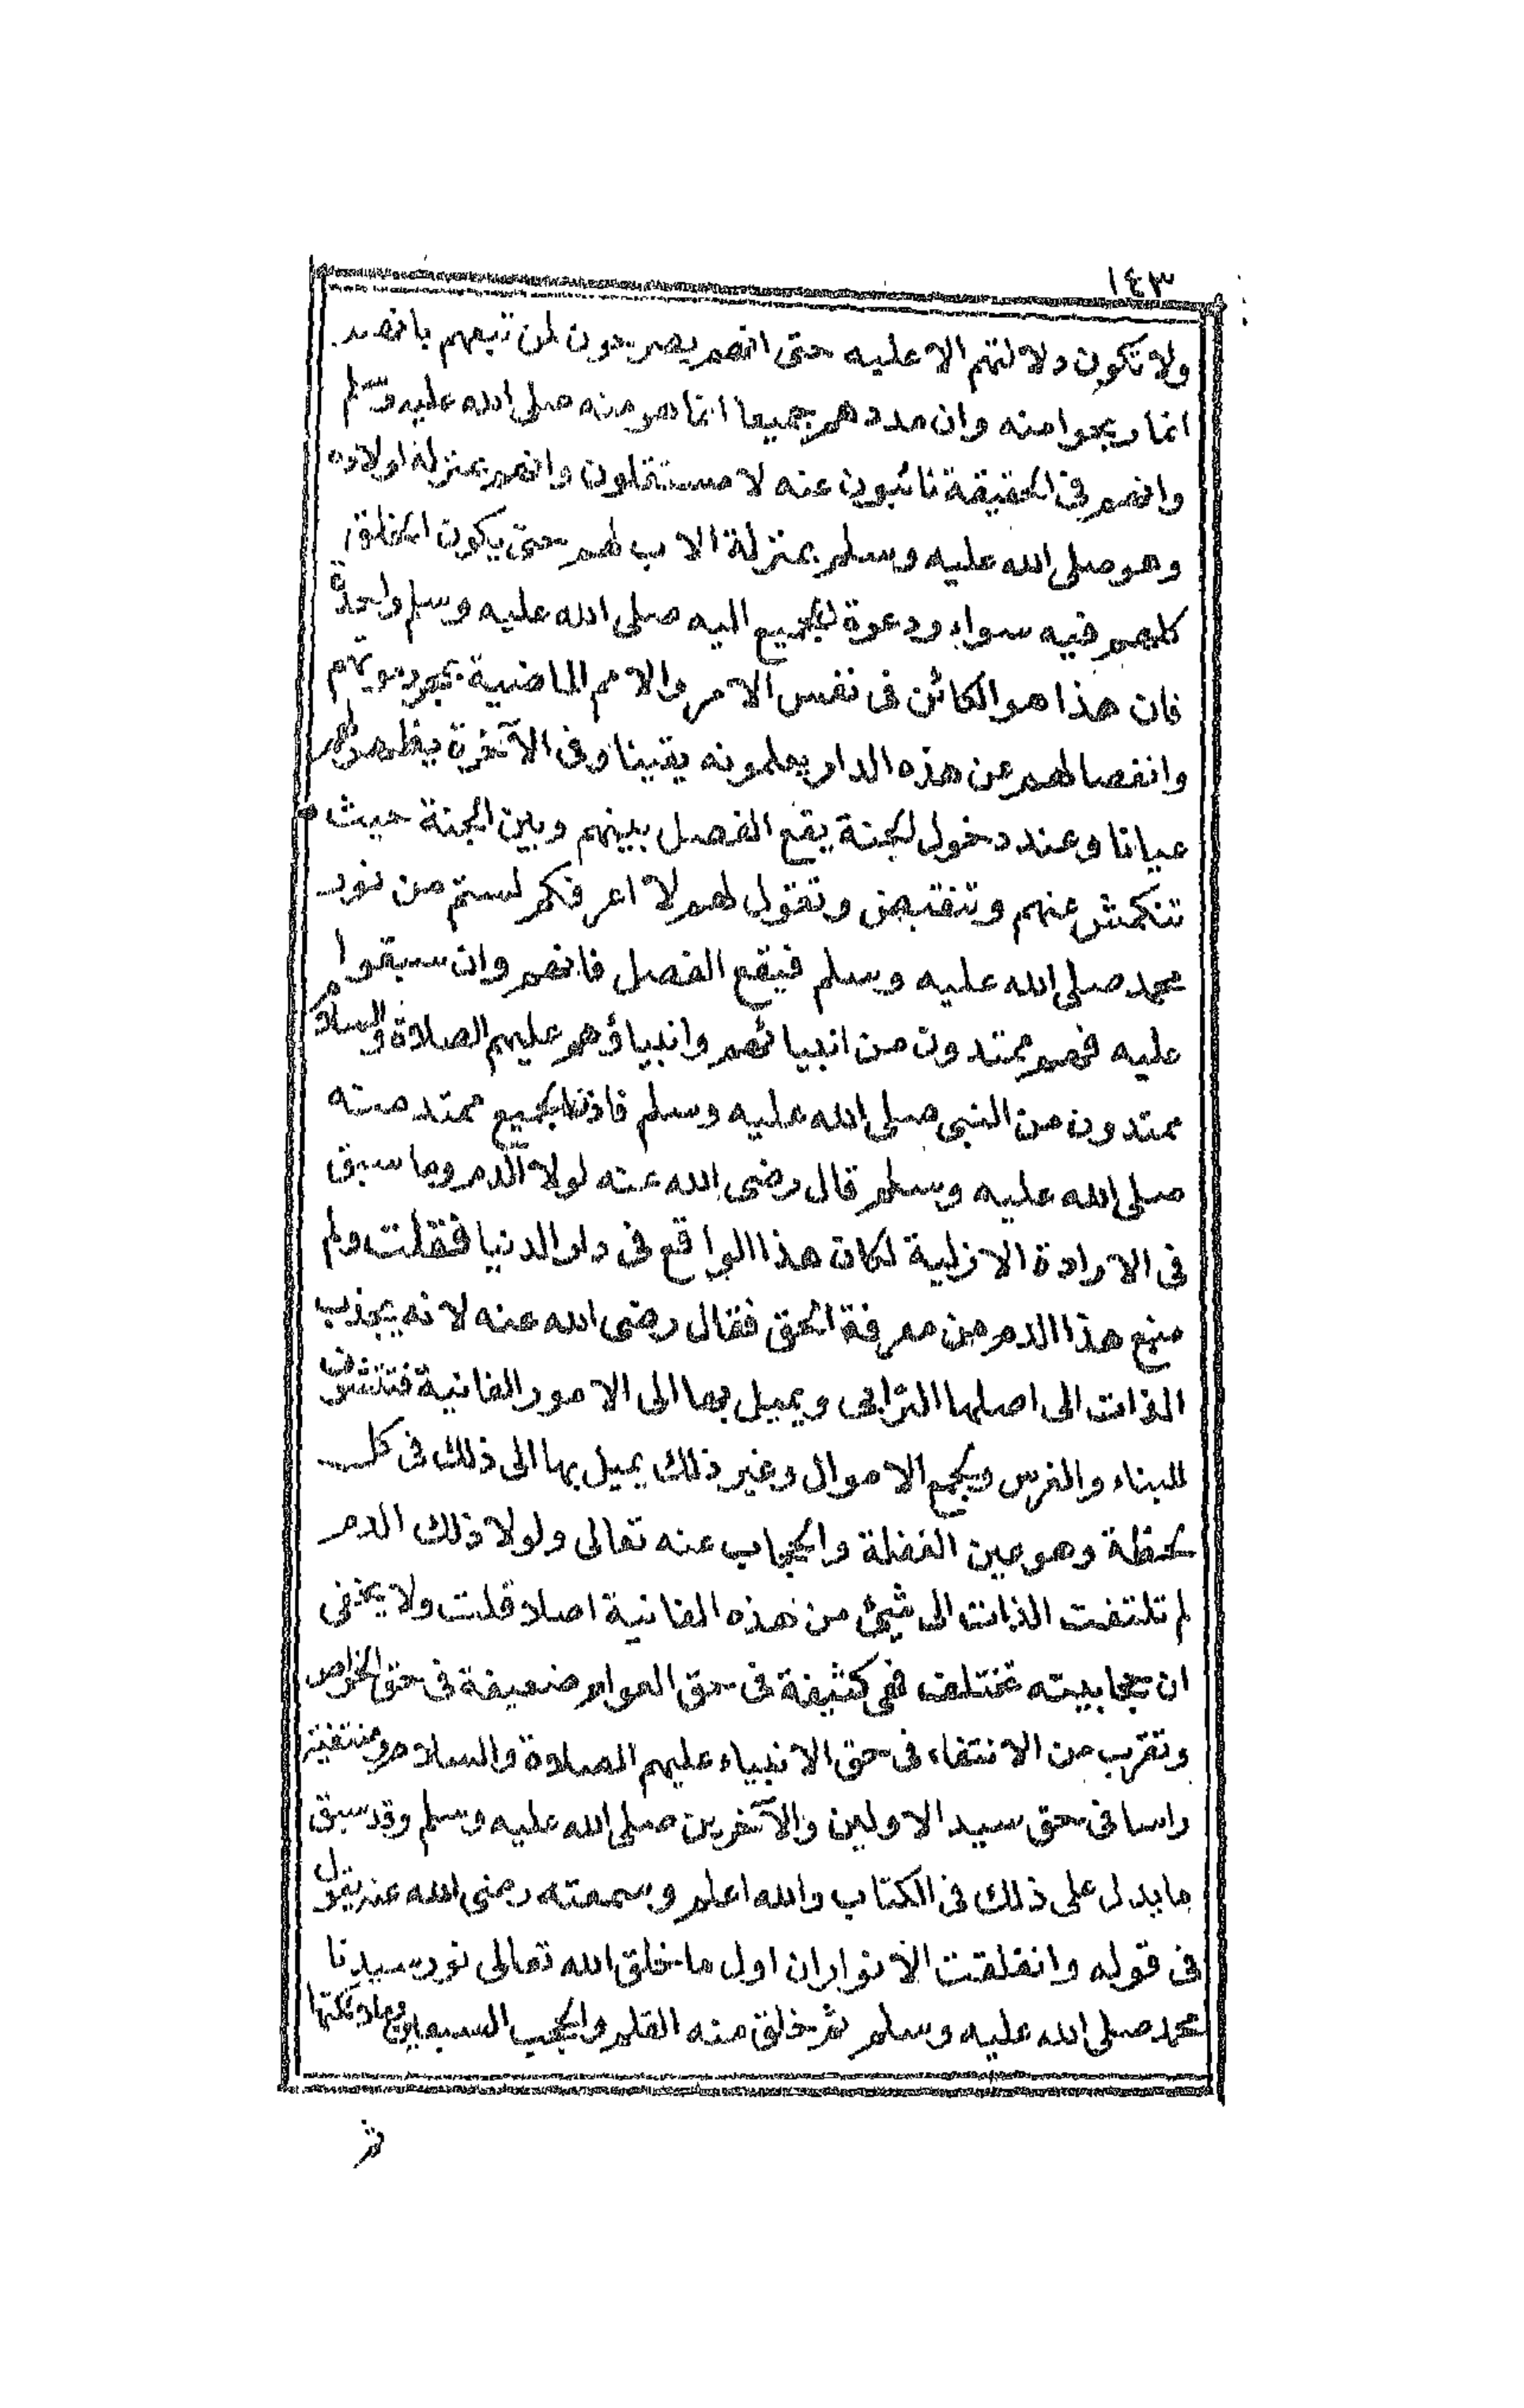 ١٤٣
ولا تكون دلالتهم الا عليه حتى انهم يصرحون لمن تبعهم بانهم
انما ربحوا منه وان مددهم جميعا انما هو منه صلى الله عليه وسلم
وانهم فى الحقيقة نائبون عنه لا مستقلون وانهم بمنزلة اولاده
وهو صلى الله عليه وسلم بمنزلة الاب لهم حتى يكون الخلق
كلهم فيه سواء ودعوة الجميع اليه صلى الله عليه وسلم واحدة
فان هذا هو الكائن فى نفس الامر والامم الماضية بمجرد موتهم
وانفصالهم عن هذه الدار يعلمونه يقينا وفى الآخرة يظهر لهم
عيانا وعند دخول الجنة يقع الفصل بينهم وبين الجنة حيث
تنكمش عنهم وتنقبض وتقول لهم لا اعرفكم لستم من نور
محمد صلى الله عليه وسلم فيقع الفصل فانهم وان سبقوا
عليه فهم ممتدون من انبيائهم وانبياؤهم عليهم الصلاة والسلام
ممتدون من النبى صلى الله عليه وسلم فاذن الجميع ممتد منه
صلى الله عليه وسلم قال رضى الله عنه لولا الدم وما سبق
فى الارادة الازلية لكان هذا الواقع فى دار الدنيا فقلت ولم
منع هذا الدم من معرفة الحق فقال رضى الله عنه لانه يجذب
الذات الى اصلها الترابى ويميل بها الى الامور الفانية فتتشوف
للبناء والغرس ويجمع الاموال وغير ذلك يميل بها الى ذلك فى كل
لحظة وهو عين الغفلة والحجاب عنه تعالى ولولا ذلك الدم
لم تلتفت الذات الى شيئ من هذه الفانية اصلا قلت ولا يخفى
ان حجابيته تختلف فهى كثيفة فى حق العوام ضعيفة فى حق الخواص
وتقرب من الانتفاء فى حق الانبياء عليهم الصلاة والسلام ومنتفية
راسا فى حق سيد الاولين والآخرين صلى الله عليه وسلم وقد سبق
ما يدل على ذلك فى الكتاب والله اعلم وسمعته رضى الله عنه يقول
فى قوله وانفلقت الانوار ان اول ما خلق الله تعالى نور سيدنا
محمد صلى الله عليه وسلم ثم خلق منه القلم والحجب السبعين وملائكتها
ثم